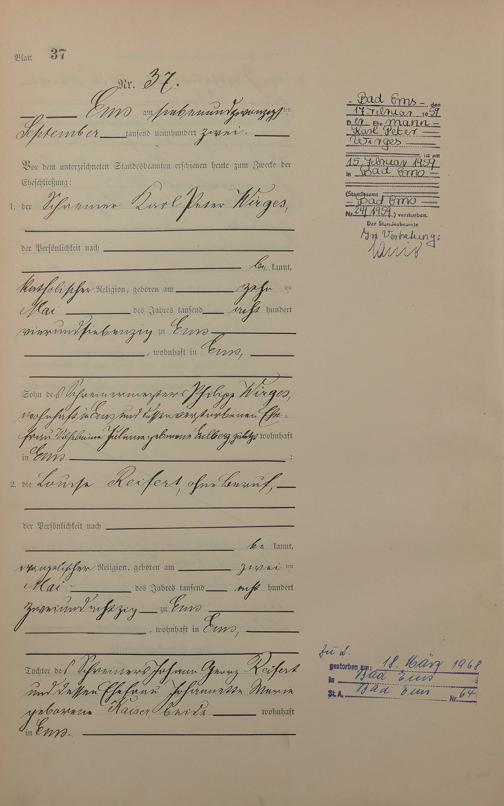 Blatt 37
Nr. 37.
Ems am siebenundzwanzigsten
September tausend neunhundert zwei.
Vor dem unterzeichneten Standesbeamten erschienen heute zum Zwecke der
Eheschließung:
1. der Schreiner Karl Peter Wirges,
der Persönlichkeit nach
be kannt,
katholischer Religion, geboren am zehnten
Mai des Jahres tausend acht hundert
vierundsiebenzig zu Ems
, wohnhaft in Ems,
Sohn des Schreinermeisters Philipp Wirges,
wohnhaft in Ems und dessen verstorbenen Ehe-
frau Juliane geborene zuletzt wohnhaft
in Ems ;
2. die Louise Reifert, ohne Beruf,
der Persönlichkeit nach
be kannt,
evangelischer Religion, geboren am zweiten
Mai des Jahres tausend acht hundert
zweiundachtzig zu Ems
, wohnhaft in Ems,
Tochter des Schreiners Johann Georg Reifert
und dessen Ehefrau Johannette Marie
geborene Kaiser beide wohnhaft
in Ems.
Bad Ems den
17. Februar 1959
Der Ehemann
Karl Peter
Wirges
ist am
15. Februar 1959
in Bad Ems
(Standesamt
Bad Ems
Nr. 24/1959.) verstorben.
Der Standesbeamte
In Vertretung:
Zu 2.
gestorben am: 18. März 1968
in Bad Ems
St.A. Bad Ems Nr. 64